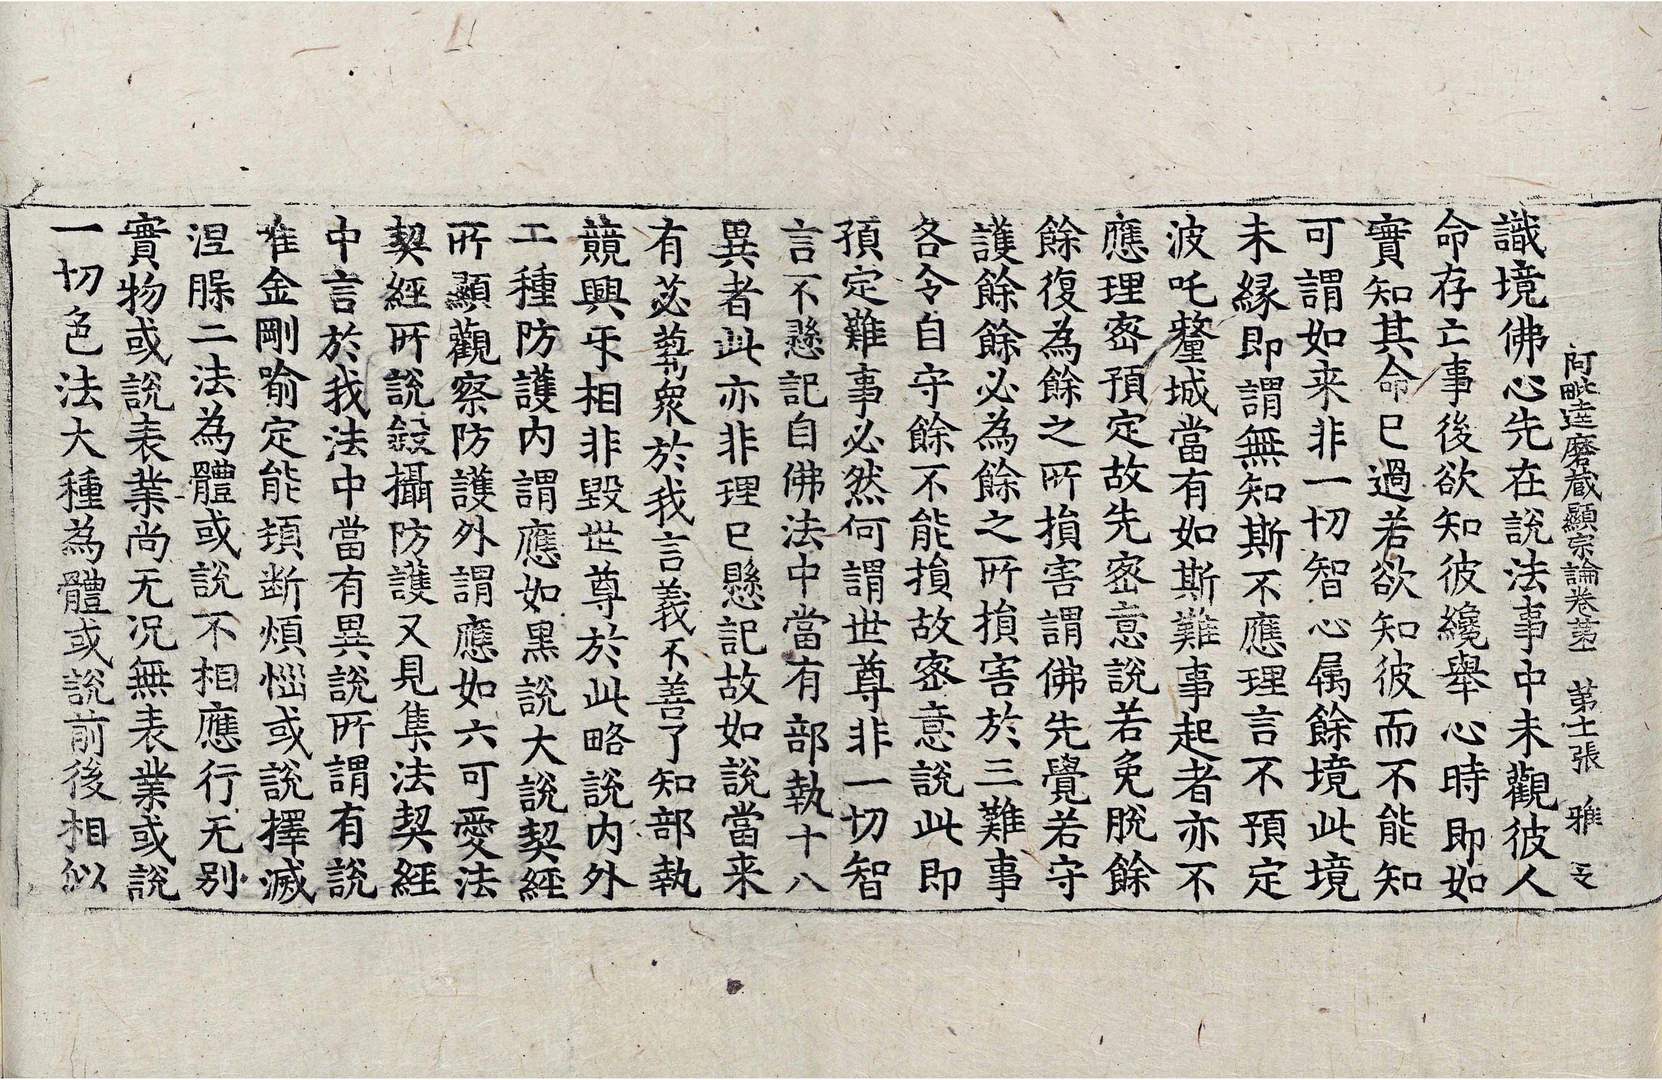 阿毗達磨藏顯宗論卷第一 第十二張 雅
識境佛心先在說法事中未觀彼人
命存亡事後欲知彼纔舉心時即如
實知其命已過若欲知彼而不能知
可謂如来非一切智心属餘境此境
未緣即謂無知斯不應理言不預定
波吒釐城當有如斯難事起者亦不
應理密預定故先密意說若免脫餘
餘復為餘之所損害謂佛先覺若守
護餘餘必為餘之所損害於三難事
各令自守餘不能損故密意說此即
預定難事必然何謂世尊非一切智
言不懸記自佛法中當有部執十八
異者此亦非理已懸記故如說當来
有苾蒭衆於我言義不善了知部執
競興㸦相非毀世尊於此略說内外
二種防護内謂應如黑說大說契經
所顯觀察防護外謂應如六可愛法
契經所說敍攝防護又見集法契經
中言於我法中當有異說所謂有說
唯金剛喻定能頓断煩惱或說擇滅
涅槃二法為體或說不相應行无別
實物或說表業尚无况無表業或說
一切色法大種為體或說前後相似